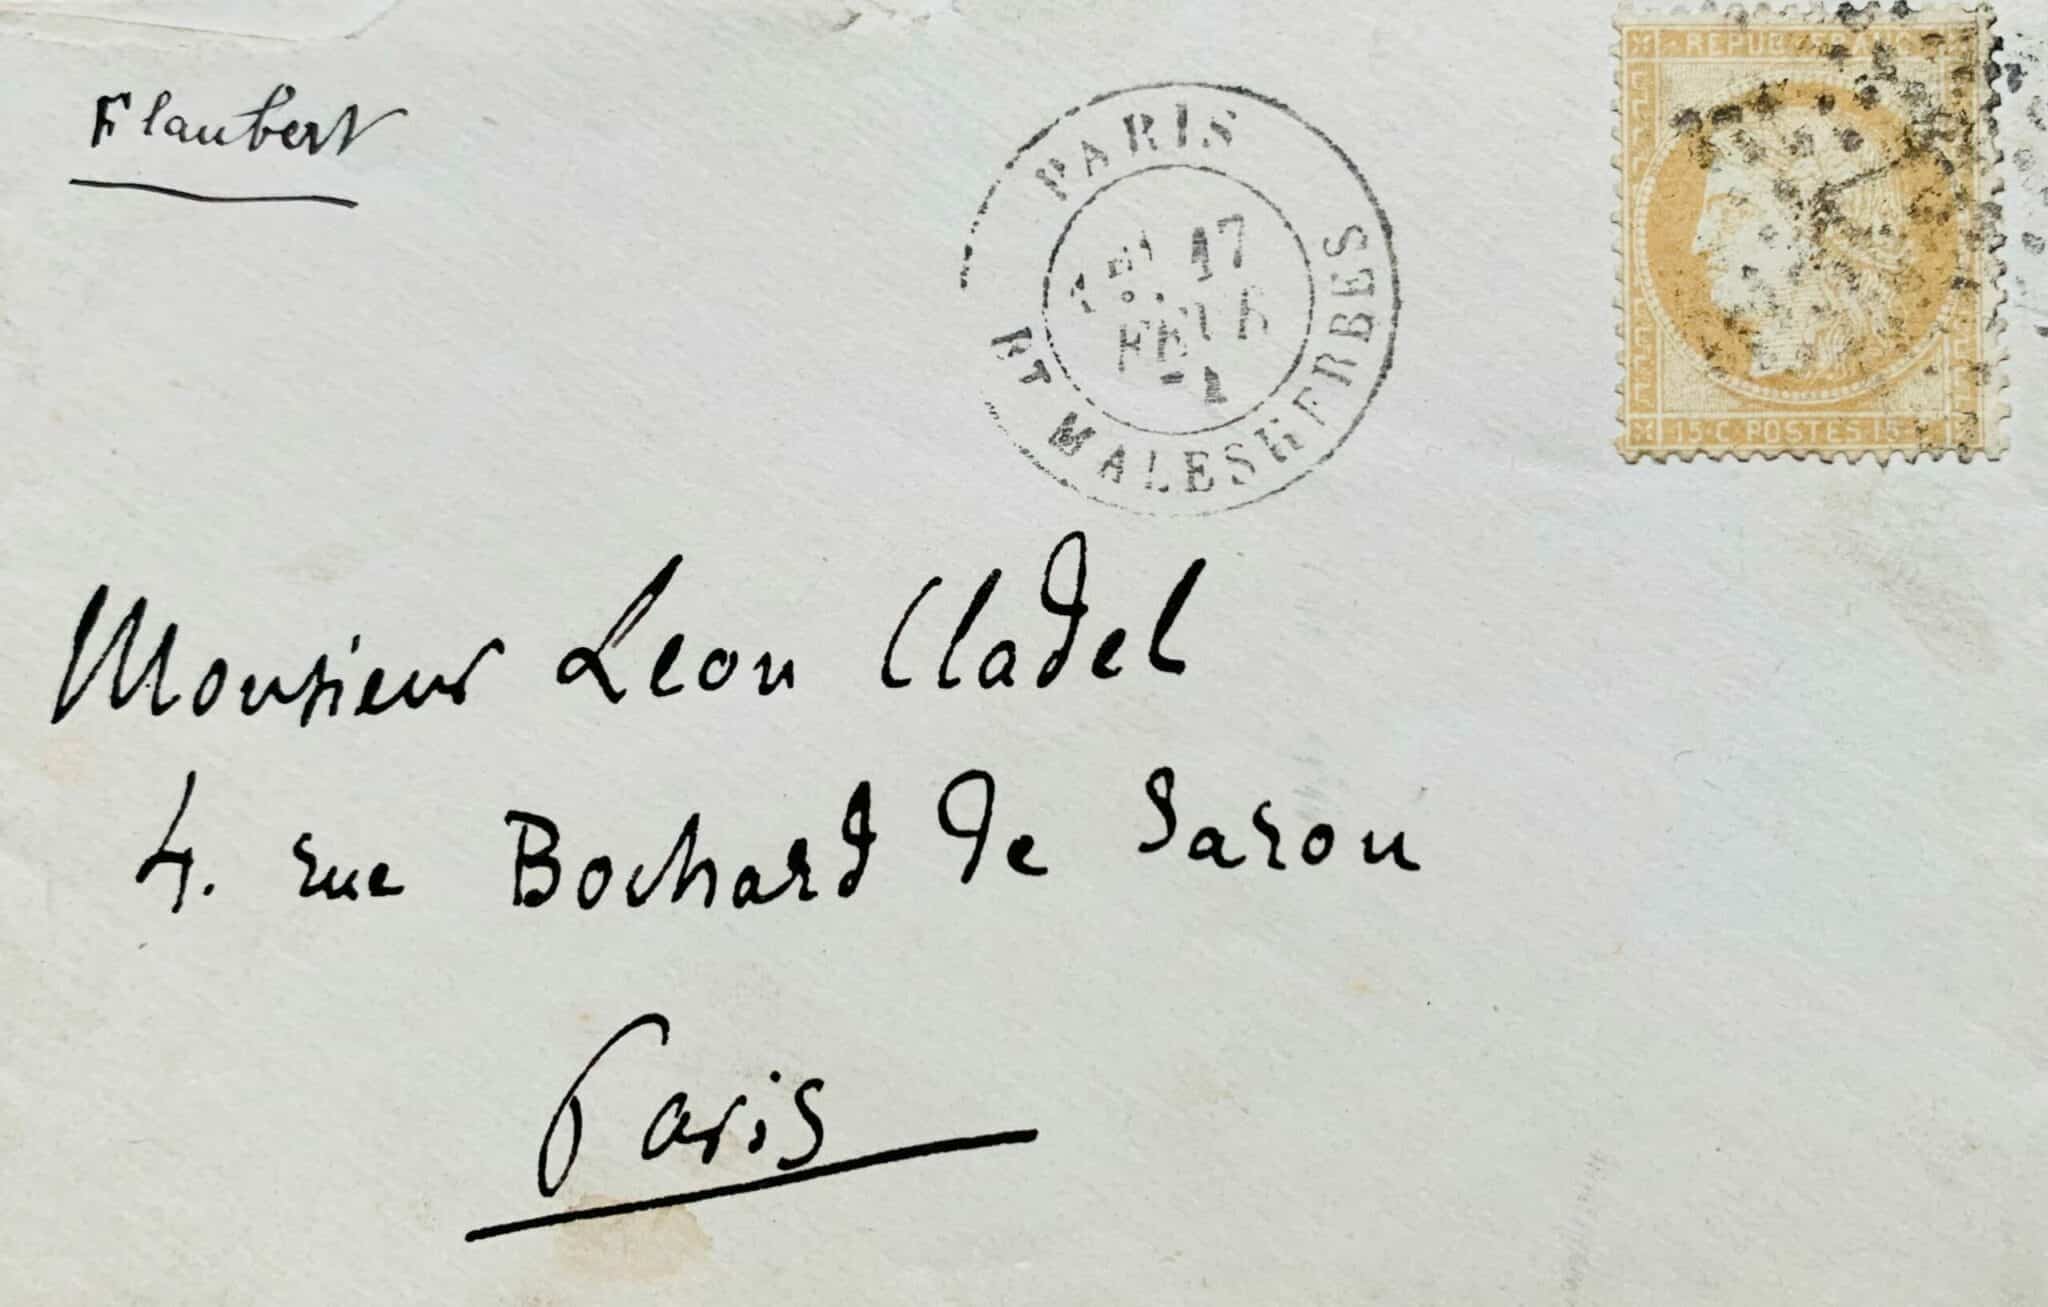 Flaubert
PARIS
17
FEVR
ET MALESHERBES
REPUB FRANC
15 C POSTES 15
Monsieur Leon Cladel
4. rue Bochard de Saron
Paris